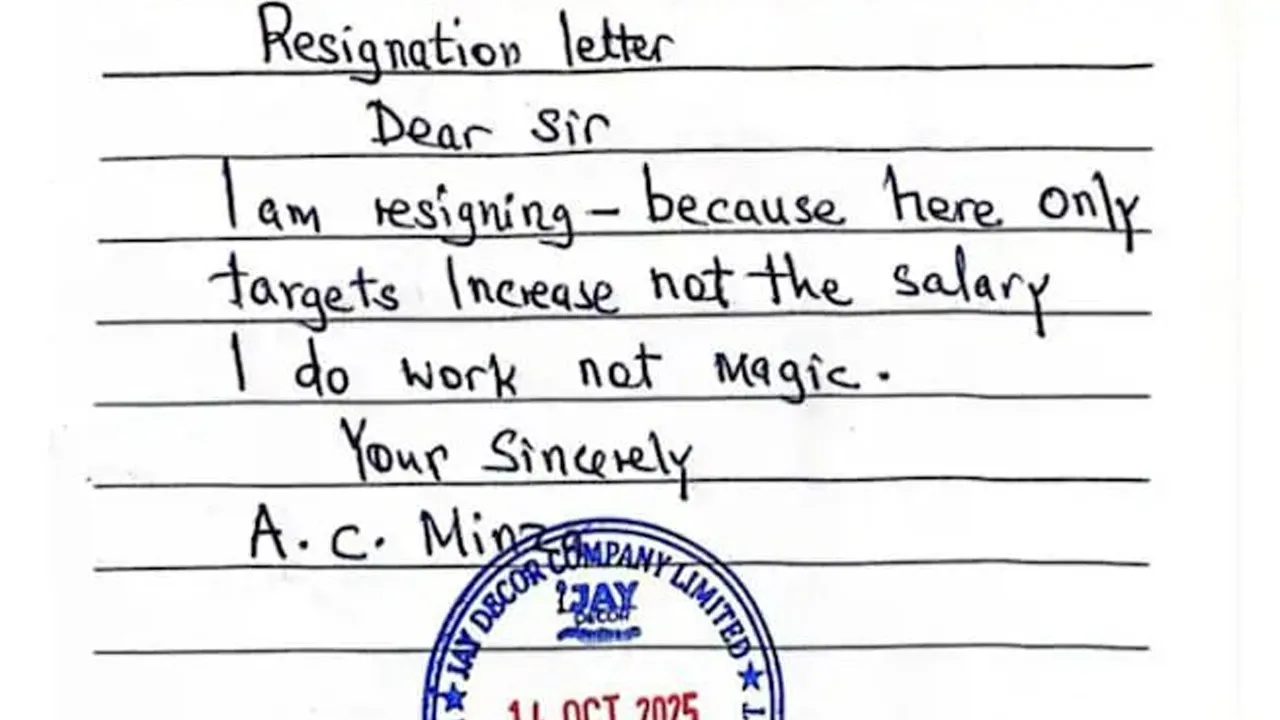 Resignation letter
Dear Sir
I am resigning - because here only
targets Increase not the salary
I do work not Magic.
Your Sincerely
A. C. Minza
★ JAY DECOR COMPANY LIMITED ★
JAY
DECOR
OCT 2025